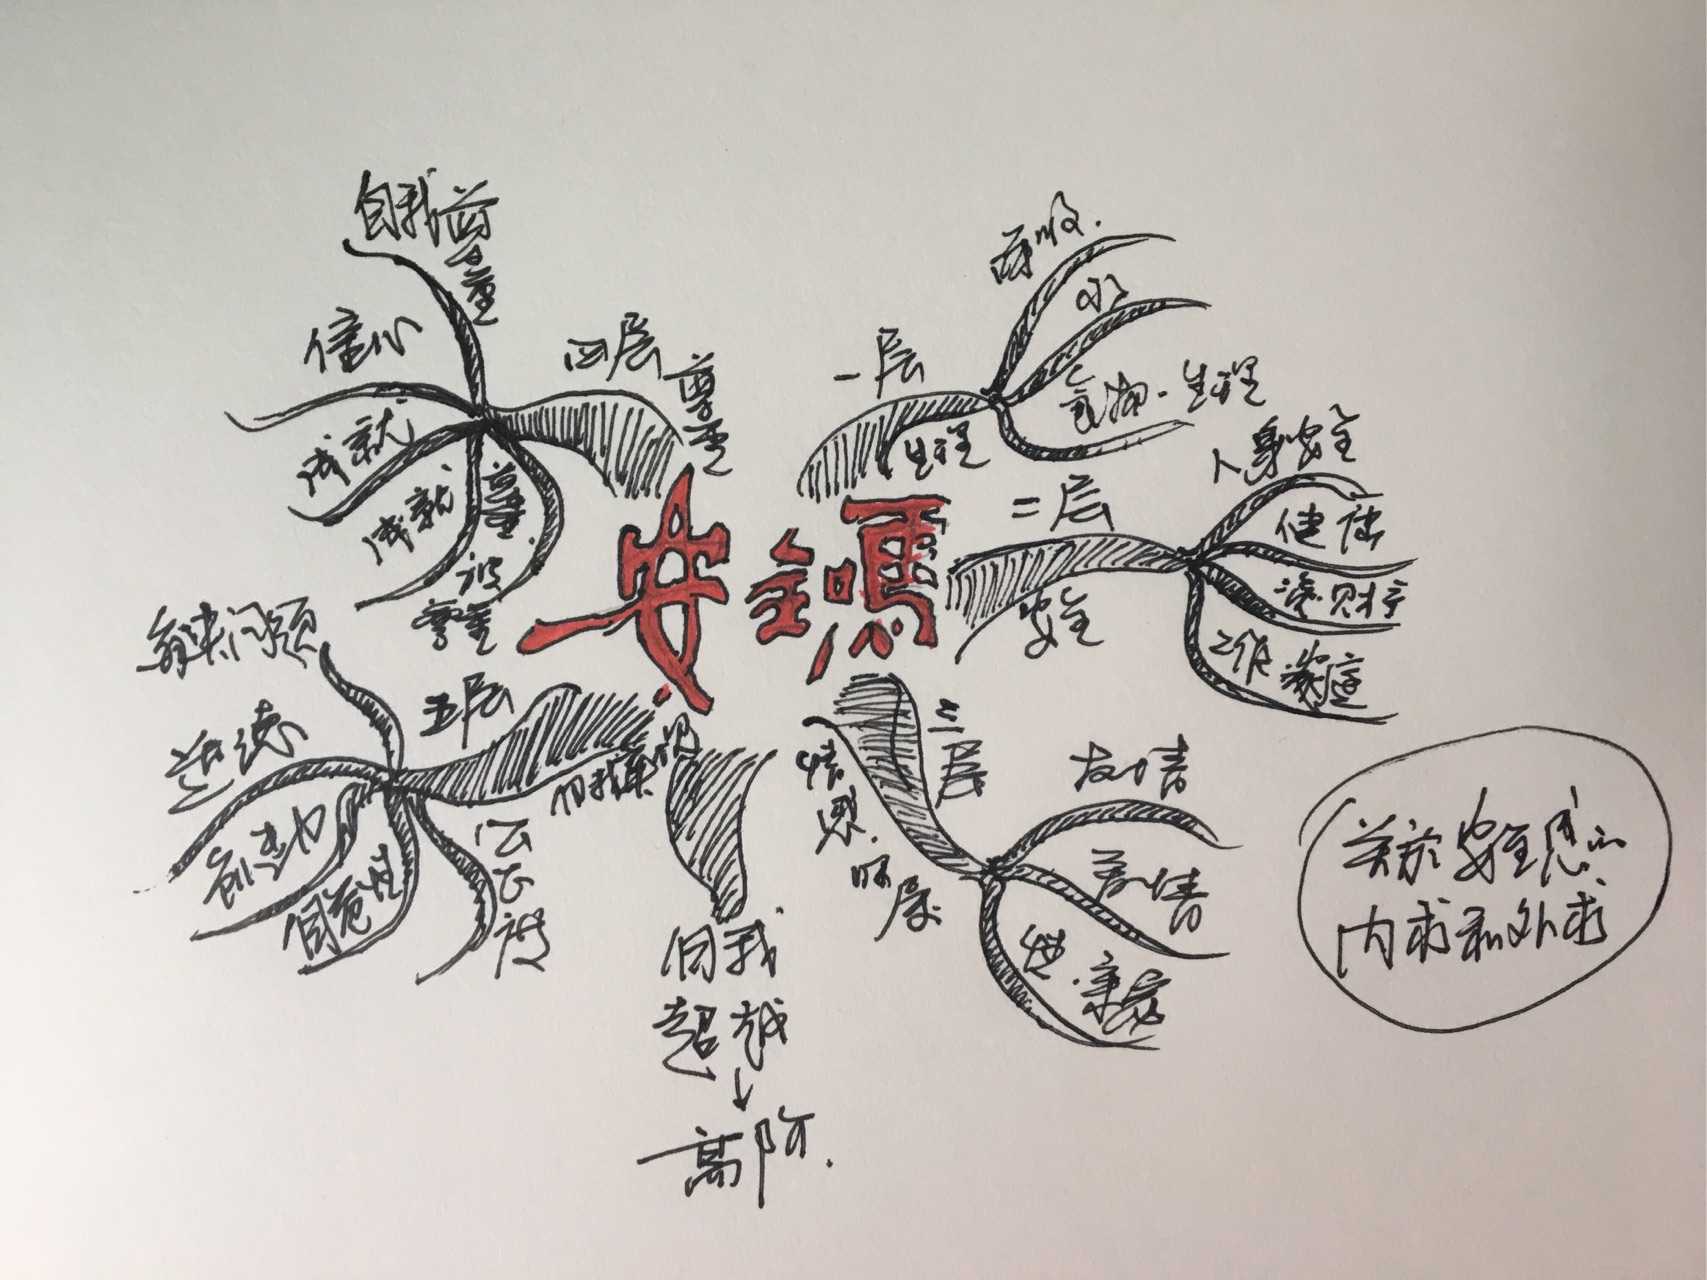 安全嗎
一层
生理
呼吸
水
食物·生理
二层
安全
人身安全
健康
财产
工作
家庭
三层
情感·归属
友情
亲情
性·亲密
四层
尊重
自我尊重
信心
成就
成就
尊重
被尊重
五层
自我实现
解决问题
道德
创造力
自觉性
公正度
自我
超越
↓
高阶.
关於安全感的
内求和外求